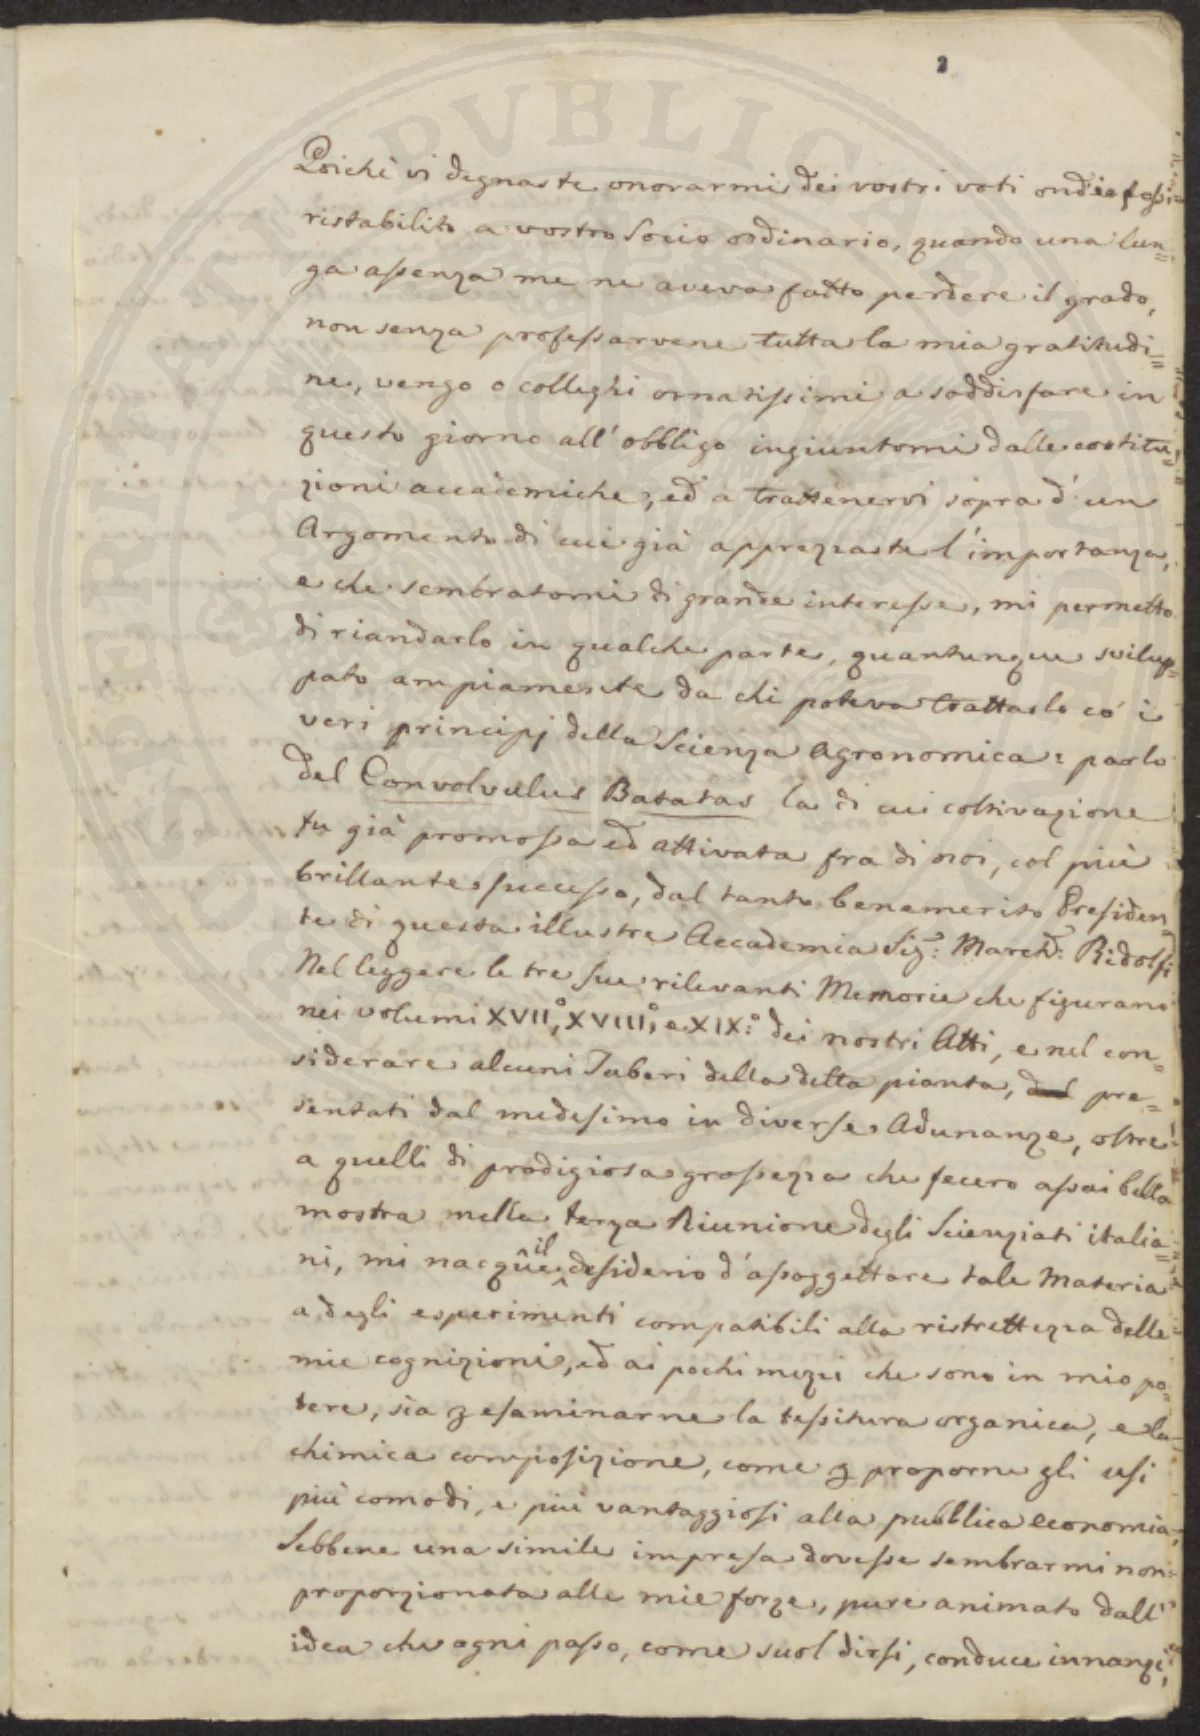 2
Poichè vi degnaste onorarmi dei vostri voti ond'io fossi
ristabilito a vostro Socio ordinario, quando una lun=
ga assenza me ne aveva fatto perdere il grado,
non senza professarvene tutta la mia gratitudi=
ne, vengo o colleghi ornatissimi a soddisfare in
questo giorno all'obbligo ingiuntomi dalle costitu=
zioni accademiche, ed a trattenervi sopra d'un
Argomento di cui già apprezzaste l'importanza,
e che sembratomi di grande interesse, mi permetto
di riandarlo in qualche parte, quantunque svilup=
pato ampiamente da chi poteva trattarlo co' i
veri principj della Scienza Agronomica: parlo
del Convolvulus Batatas la di cui coltivazione
fu già promossa ed attivata fra di noi, col più
brillante successo, dal tanto benemerito Presiden
te di questa illustre Accademia Sig: March: Ridolfi
Nel leggere le tre sue rilevanti Memorie che figurano
nei volumi XVII°, XVIII°, e XIX:° dei nostri Atti, e nel con=
siderare alcuni Tuberi della detta pianta, dal pre=
sentati dal medesimo in diverse Adunanze, oltre
a quelli di prodigiosa grossezza che fecero assai bella
mostra nella terza Riunione degli Scienziati italia=
ni, mi nacque il desiderio d'assoggettare tale Materia
a degli esperimenti compatibili alla ristrettezza delle
mie cognizioni, ed ai pochi mezzi che sono in mio po=
tere, sia p esaminarne la tessitura organica, e la
chimica composizione, come p proporne gli usi
più comodi, e più vantaggiosi alla pubblica economia,
Sebbene una simile impresa dovesse sembrarmi non
proporzionata alle mie forze, pure animato dall'
idea che ogni passo, come suol dirsi, conduce innanzi,